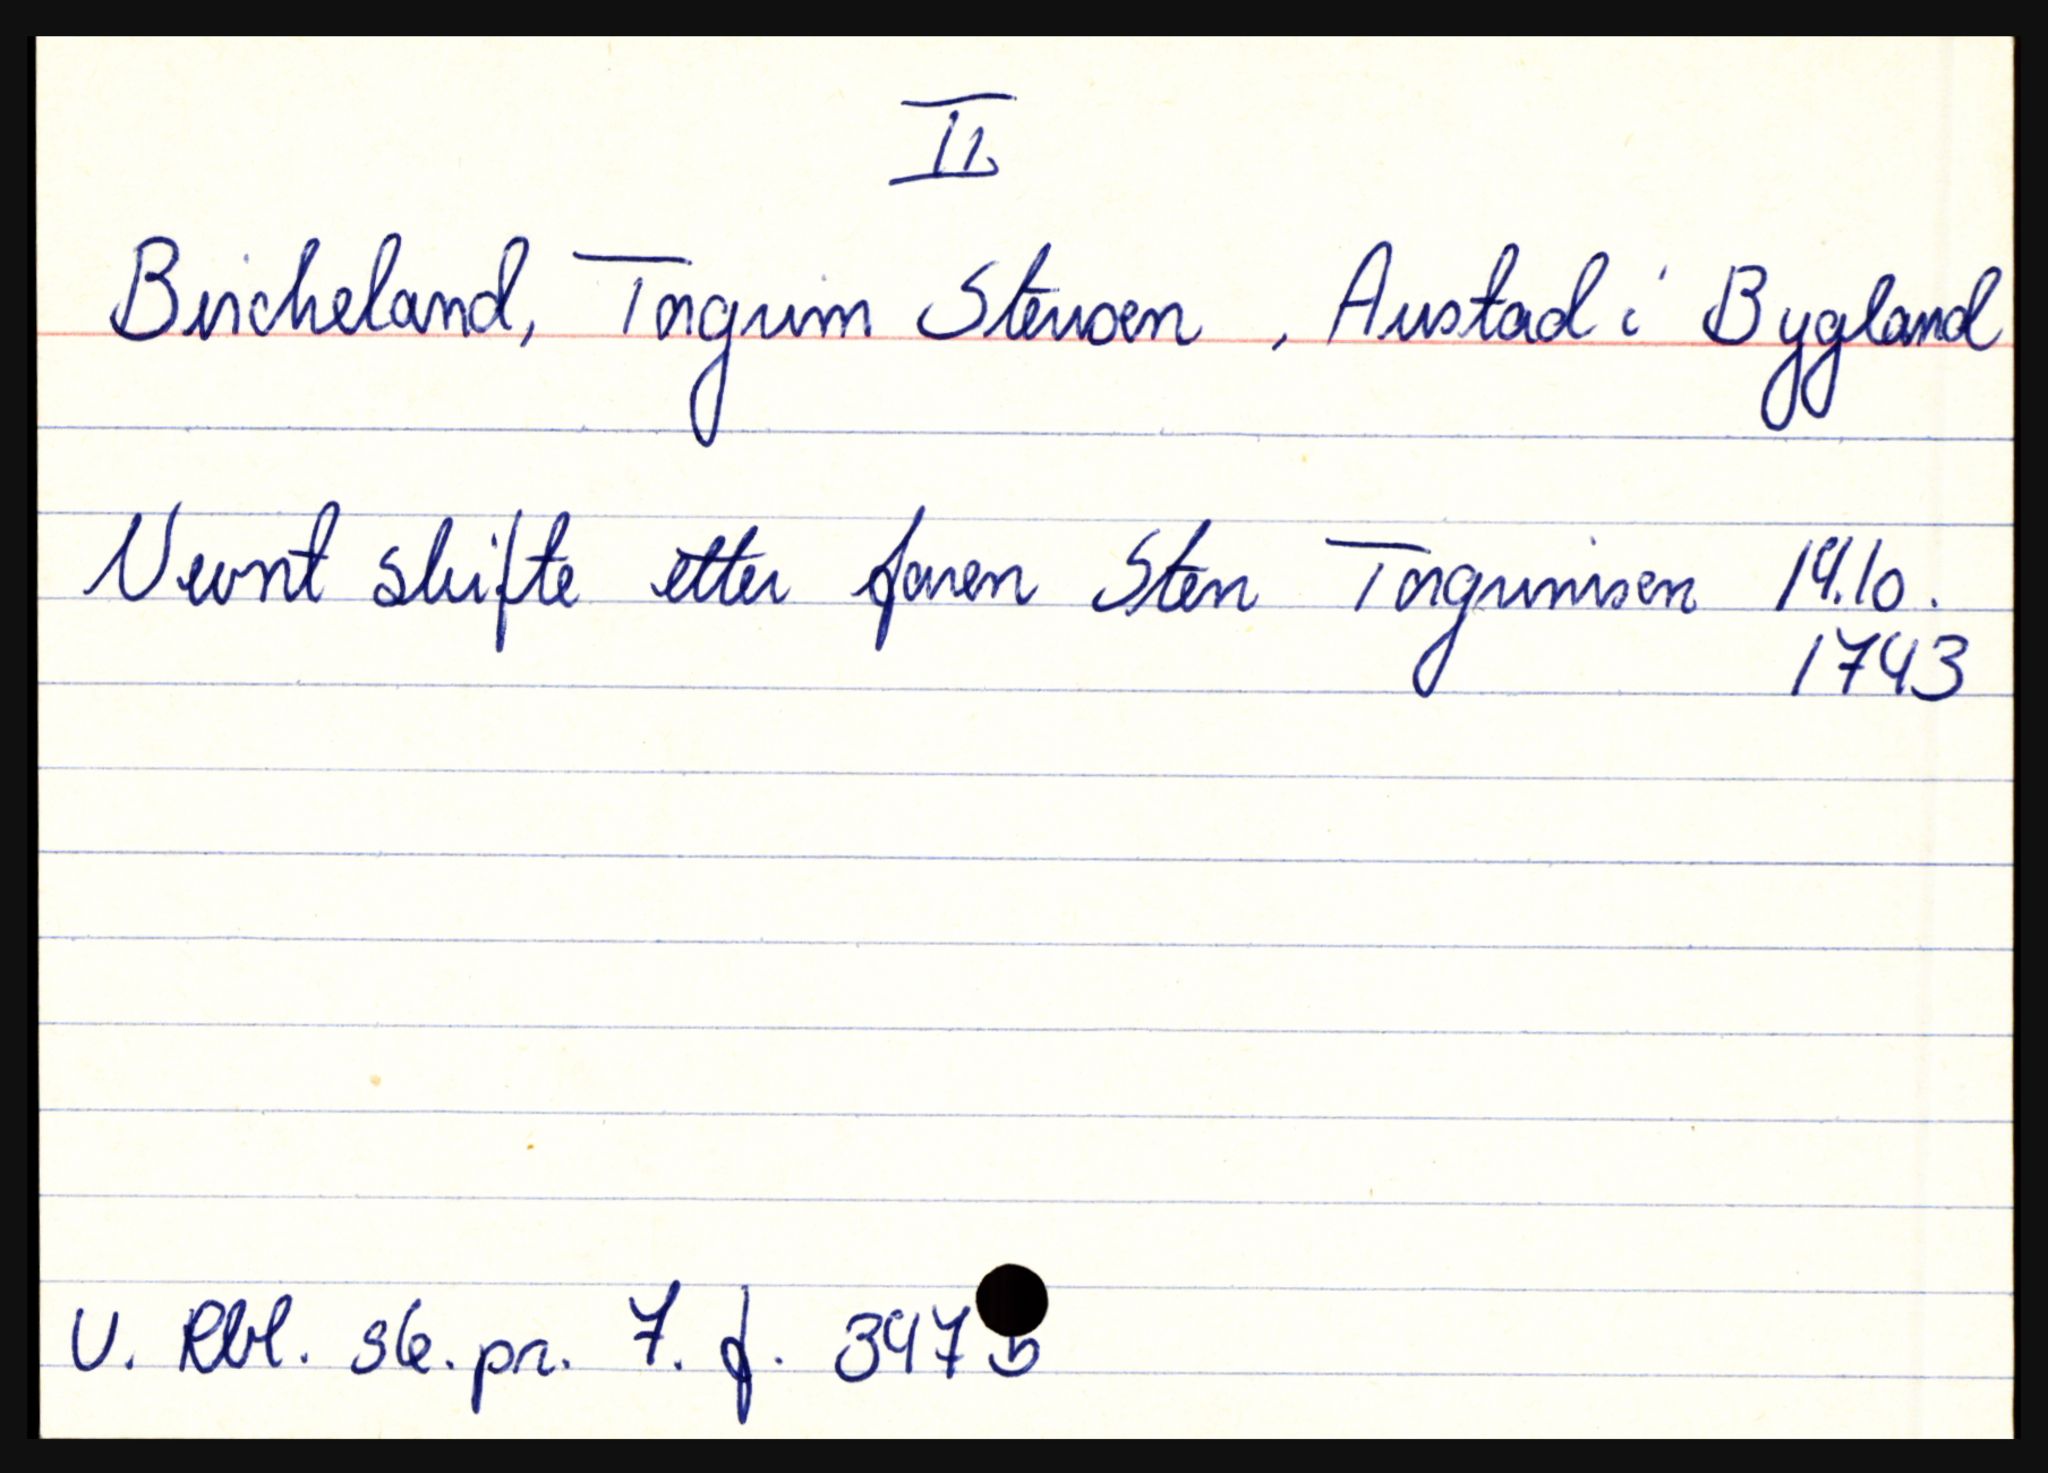 II
Bircheland, Torgrim Stensen , Austad i Bygland
Nevnt skifte etter faren Sten Torgrimsen 14.10.
1743
V. Rbl. sk.pr. 7. f. 347 b